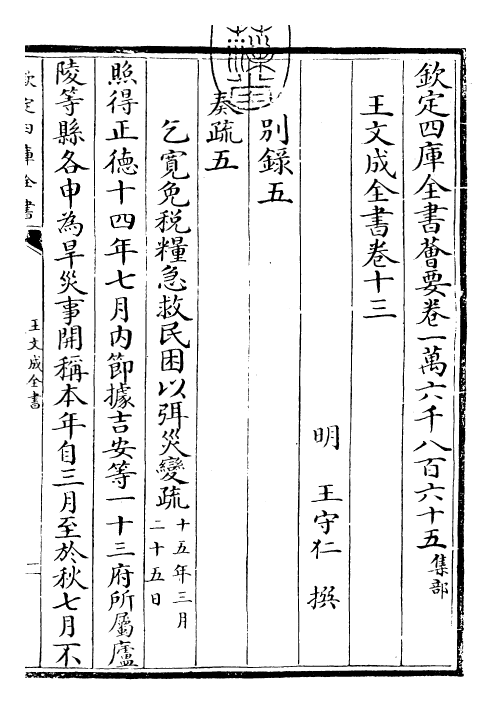 欽定四庫全書薈要卷一萬六千八百六十五集部
王文成全書卷十三
明 王守仁 撰
別錄五
奏疏五
乞寬免税糧急救民困以弭災變疏十五年三月二十五日
照得正德十四年七月内節據吉安等一十三府所屬廬
陵等縣各申為旱災事開稱本年自三月至於秋七月不
欽定四庫全書
王文成全書